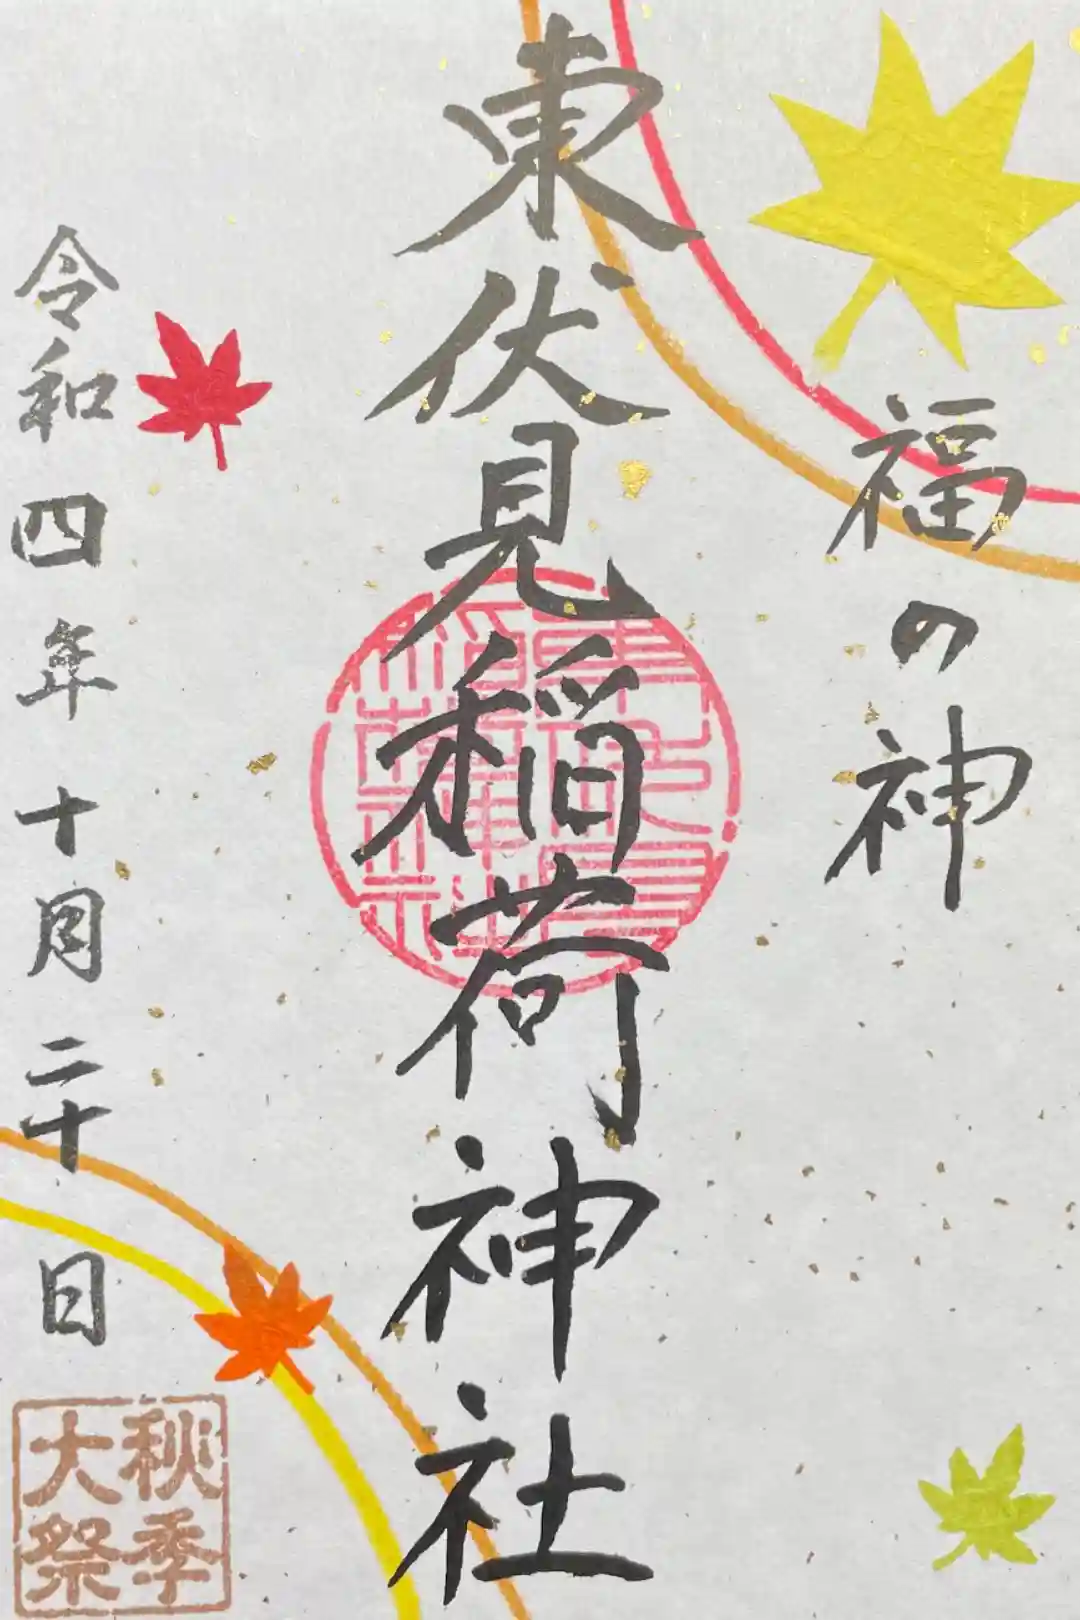 福の神
東伏見稲荷神社
東伏見稲荷神社
令和四年十月二十日
秋季
大祭